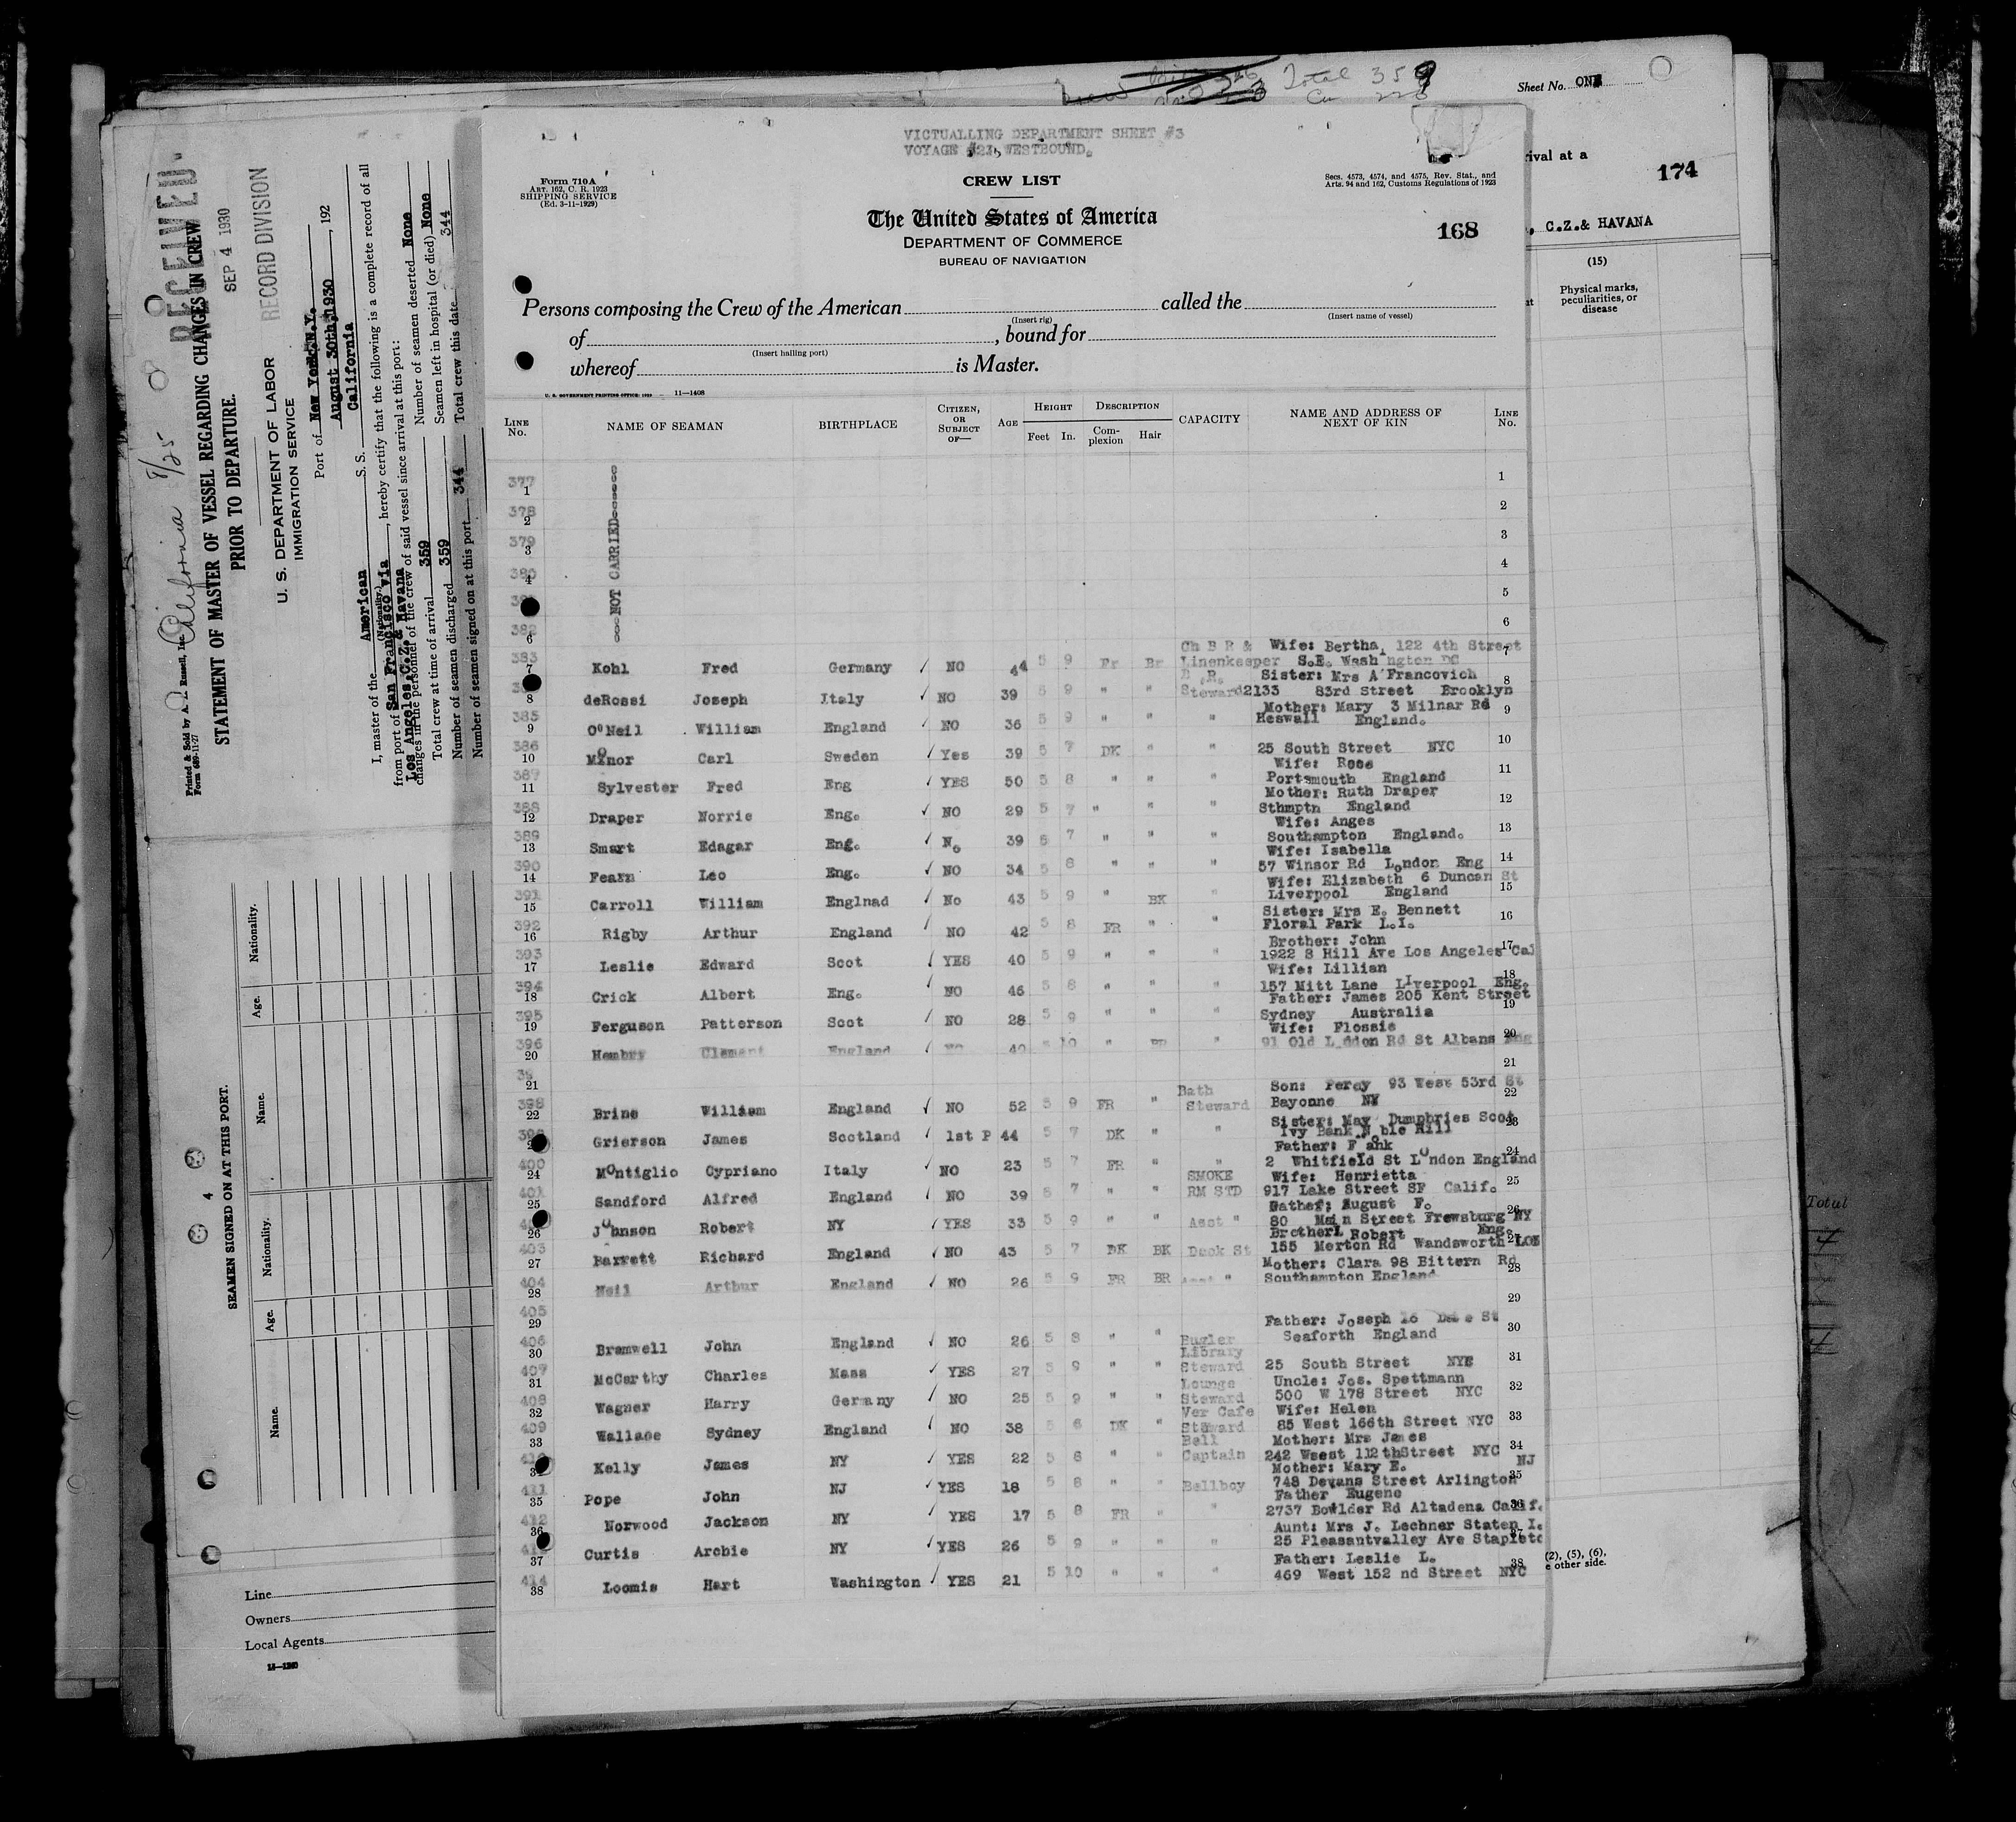 Total 359
Sheet No. ONE
rival at a
174
, C.Z.& HAVANA
(15)
Physical marks, peculiarities, or disease
VICTUALLING DEPARTMENT SHEET #3
VOYAGE #21, WESTBOUND.
Form 710A
ART. 162, C. R. 1923
SHIPPING SERVICE
(Ed. 3-11-1929)
CREW LIST
Secs. 4573, 4574, and 4575, Rev. Stat., and
Arts. 94 and 162, Customs Regulations of 1923
The United States of America
DEPARTMENT OF COMMERCE
BUREAU OF NAVIGATION
168
Persons composing the Crew of the American called the
(Insert rig) (Insert name of vessel)
of , bound for
(Insert hailing port)
whereof is Master.
U. S. GOVERNMENT PRINTING OFFICE: 11—1408
LINE No. NAME OF SEAMAN BIRTHPLACE CITIZEN, OR SUBJECT OF— AGE HEIGHT Feet In. DESCRIPTION Complexion Hair CAPACITY NAME AND ADDRESS OF NEXT OF KIN LINE No.
377 1 1
378 2 2
379 3 3
380 4 4
5
382 6 6
NOT CARRIED
Ch B R & Wife: Bertha, 122 4th Street
383 7 Kohl Fred Germany ✓ NO 44 5 9 Fr Br Linenkeeper S.E. Washington DC 7
B.R. Sister: Mrs A Francovich
8 deRossi Joseph Italy ✓ NO 39 5 9 " " Steward 2133 83rd Street Brooklyn 8
Mother: Mary 3 Milnar Rd
385 9 O'Neil William England ✓ NO 36 5 9 " " " Heswall England. 9
386 10 Minor Carl Sweden ✓ Yes 39 5 7 DK " " 25 South Street NYC 10
Wife: Rose
387 11 Sylvester Fred Eng ✓ YES 50 5 8 " " " Portsmouth England 11
Mother: Ruth Draper
388 12 Draper Norrie Eng. ✓ NO 29 5 7 " " " Sthmptn England 12
Wife: Anges
389 13 Smart Edagar Eng. ✓ No 39 5 7 " " " Southampton England. 13
Wife: Isabella
390 14 Fearn Leo Eng. ✓ NO 34 5 8 " " " 57 Winsor Rd London Eng 14
Wife: Elizabeth 6 Duncan St
391 15 Carroll William Englnad ✓ No 43 5 9 " BK " Liverpool England 15
Sister: Mrs E. Bennett
392 16 Rigby Arthur England ✓ NO 42 5 8 FR " " Floral Park L.I. 16
Brother: John
393 17 Leslie Edward Scot ✓ YES 40 5 9 " " " 1922 S Hill Ave Los Angeles Cal 17
Wife: Lillian
394 18 Crick Albert Eng. ✓ NO 46 5 8 " " " 157 Mitt Lane Liverpool Eng. 18
Father: James 205 Kent Street
395 19 Ferguson Patterson Scot ✓ NO 28 5 9 " " " Sydney Australia 19
Wife: Flossie
396 20 Hembry Clement England ✓ NO 40 5 10 " " 91 Old London Rd St Albans Eng 20
21 21
Bath Son: Percy 93 West 53rd St
398 22 Brine William England ✓ NO 52 5 9 FR " Steward Bayonne NY 22
Sister: May Dumphries Scot
Grierson James Scotland ✓ 1st P 44 5 7 DK " " Ivy Bank Noble Hill 23
Father: Frank
400 24 Montiglio Cypriano Italy ✓ NO 23 5 7 FR " " 2 Whitfield St London England 24
SMOKE Wife: Henrietta
401 25 Sandford Alfred England ✓ NO 39 5 7 " " RM STD 917 Lake Street SF Calif. 25
Father: August F.
26 Johnson Robert NY ✓ YES 33 5 9 " " Asst " 80 Main Street Frewsburg NY 26
Brother: Robert Eng.
403 27 Barrett Richard England ✓ NO 43 5 7 DK BK Deck St 155 Merton Rd Wandsworth LON 27
Mother: Clara 98 Bittern Rd
404 28 Neil Arthur England ✓ NO 26 5 9 FR BR Asst " Southampton England 28
405 29 29
Father: Joseph St
406 30 Bramwell John England ✓ NO 26 5 8 " " Bugler Seaforth England 30
Library
407 31 McCarthy Charles Mass ✓ YES 27 5 9 " " Steward 25 South Street NYC 31
Lounge Uncle: Jos. Spettmann
408 32 Wagner Harry Germany ✓ NO 25 5 9 " " Steward 500 W 178 Street NYC 32
Ver Cafe Wife: Helen
409 33 Wallace Sydney England ✓ NO 38 5 6 DK " Steward 85 West 166th Street NYC 33
Bell Mother: Mrs James
Kelly James NY ✓ YES 22 5 8 " " Captain 242 Weest 112thStreet NYC 34
Mother: Mary E. NJ
411 35 Pope John NJ ✓ YES 18 5 8 " " Bellboy 748 Devans Street Arlington 35
Father Eugene
412 36 Norwood Jackson NY ✓ YES 17 5 8 FR " " 2737 Bowlder Rd Altadena Calif. 36
Aunt: Mrs J. Lechner Staten I.
37 Curtis Archie NY ✓ YES 26 5 9 " " " 25 Pleasantvalley Ave Stapleto 37
Father: Leslie L.
414 38 Loomis Hart Washington ✓ YES 21 5 10 " " " 469 West 152 nd Street NYC 38
(2), (5), (6),
e other side.
Total
Printed & Sold by A. J. Russell, Inc.
Form 689-11-27
California 8/25
RECEIVED
SEP 4 1930
RECORD DIVISION
STATEMENT OF MASTER OF VESSEL REGARDING CHANGES IN CREW
PRIOR TO DEPARTURE.
U. S. DEPARTMENT OF LABOR
IMMIGRATION SERVICE
Port of New York, N.Y.
August 30th, 1930 , 192
I, master of the American S. S. California
(Nationality.)
from port of San Francisco via Los Angeles,C.Z.& Havana , hereby certify that the following is a complete record of all
changes in the personnel of the crew of said vessel since arrival at this port:
Total crew at time of arrival 359 Number of seamen deserted None
Number of seamen discharged 359 Seamen left in hospital (or died) None
Number of seamen signed on at this port 344 Total crew this date 344
SEAMEN SIGNED ON AT THIS PORT.
4
Name. Age. Nationality. Name. Age. Nationality.
Line
Owners
Local Agents
14—1240